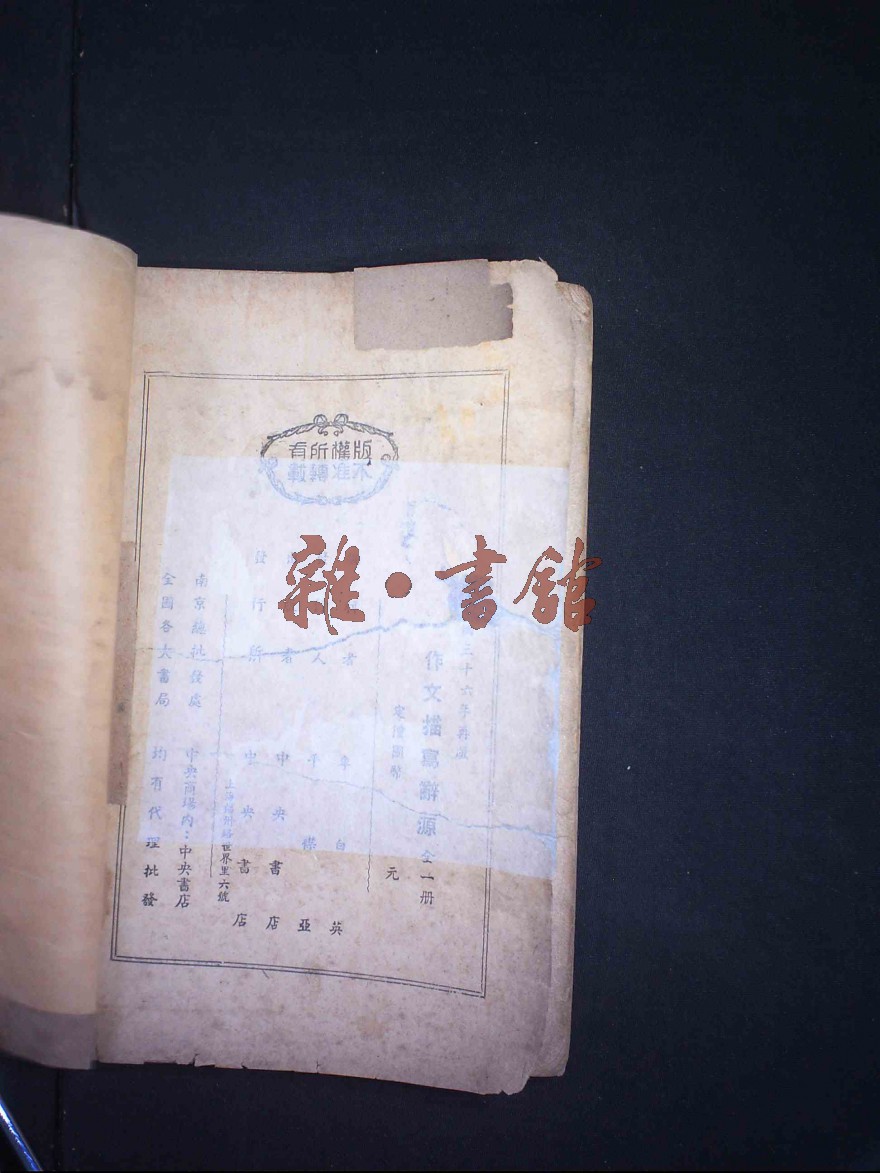 版權所有
不准轉載
三十六年再版
作文描寫辭源 全一册
定價國幣 元
者 韋白英
人 平襟亞
者 中央書店
發行所 中央書店
上海福州路世界里六號
南京總批發處 中央商場內：中央書店
全國各大書局 均有代理批發
雜·書館